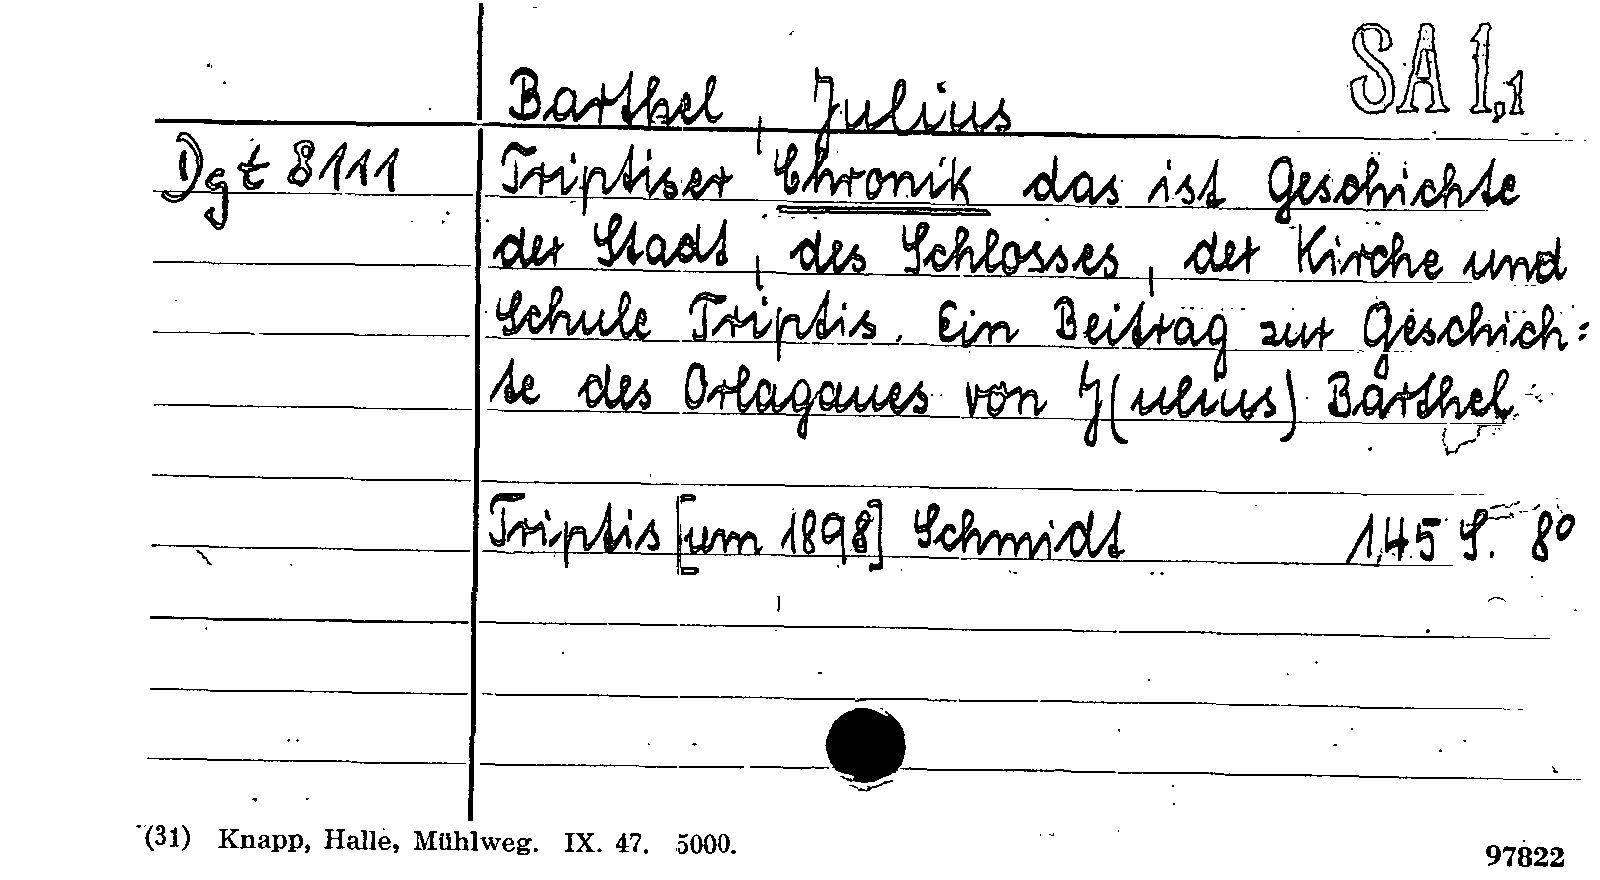 SA 1,1
Barthel, Julius
Dgt 8111
Triptiser Chronik das ist Geschichte
der Stadt, des Schlosses, der Kirche und
Schule Triptis. Ein Beitrag zur Geschich=
te des Orlagaues von J(ulius) Barthel
Triptis [um 1898] Schmidt 145 S. 8°
(31) Knapp, Halle, Mühlweg. IX. 47. 5000.
97822